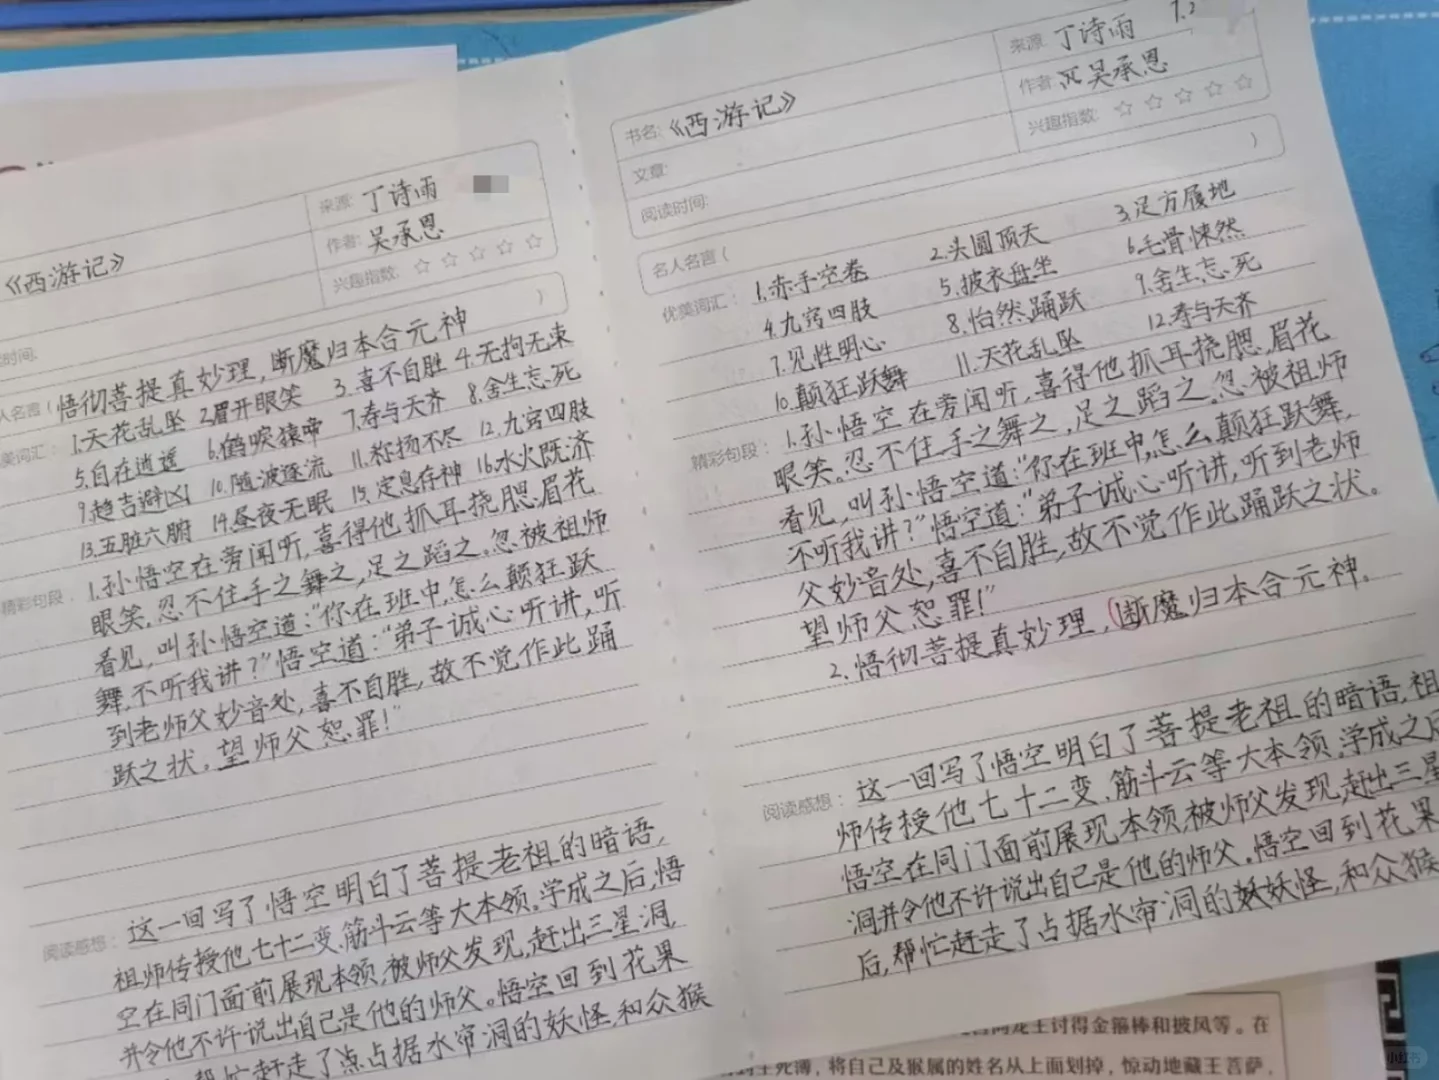 来源: 丁诗雨
《西游记》
作者: 吴承恩
兴趣指数: ☆☆☆☆☆
时间:
人名言( 悟彻菩提真妙理,断魔归本合元神 )
美词汇: 1.天花乱坠 2.眉开眼笑 3.喜不自胜 4.无拘无束
5.自在逍遥 6.鹤唳猿啼 7.寿与天齐 8.舍生忘死
9.趋吉避凶 10.随波逐流 11.称扬不尽 12.九窍四肢
13.五脏六腑 14.昼夜无眠 15.定息存神 16.水火既济
精彩句段: 1.孙悟空在旁闻听,喜得他抓耳挠腮,眉花
眼笑,忍不住手之舞之,足之蹈之。忽被祖师
看见,叫孙悟空道:“你在班中,怎么颠狂跃
舞,不听我讲?”悟空道:“弟子诚心听讲,听
到老师父妙音处,喜不自胜,故不觉作此踊
跃之状。望师父恕罪!”
阅读感想: 这一回写了悟空明白了菩提老祖的暗语,
祖师传授他七十二变、筋斗云等大本领。学成之后,悟
空在同门面前展现本领,被师父发现,赶出三星洞,
并令他不许说出自己是他的师父。悟空回到花果
帮忙赶走了占据水帘洞的妖怪,和众猴
7.2
来源: 丁诗雨
书名: 《西游记》
作者: 吴承恩
文章:
兴趣指数: ☆☆☆☆☆
阅读时间:
名人名言( )
优美词汇: 1.赤手空卷 2.头圆顶天 3.足方履地
4.九窍四肢 5.披衣盘坐 6.毛骨悚然
7.见性明心 8.怡然踊跃 9.舍生忘死
10.颠狂跃舞 11.天花乱坠 12.寿与天齐
精彩句段: 1.孙悟空在旁闻听,喜得他抓耳挠腮,眉花
眼笑。忍不住手之舞之,足之蹈之。忽被祖师
看见,叫孙悟空道:“你在班中,怎么颠狂跃舞,
不听我讲?”悟空道:“弟子诚心听讲,听到老师
父妙音处,喜不自胜,故不觉作此踊跃之状。
望师父恕罪!”
2.悟彻菩提真妙理,断魔归本合元神。
阅读感想: 这一回写了悟空明白了菩提老祖的暗语,祖
师传授他七十二变、筋斗云等大本领。学成之后
悟空在同门面前展现本领,被师父发现,赶出三星
洞并令他不许说出自己是他的师父。悟空回到花果
后,帮忙赶走了占据水帘洞的妖怪,和众猴
龙王讨得金箍棒和披风等。在
生死簿,将自己及猴属的姓名从上面划掉,惊动地藏王菩萨,